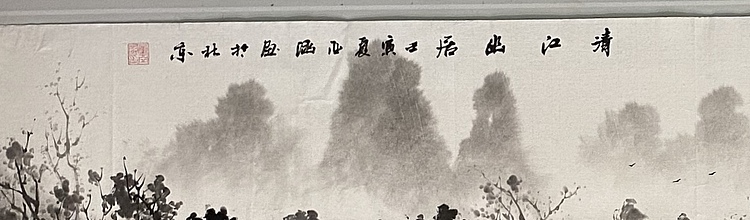 清江幽居 壬寅夏月 涵画於北京